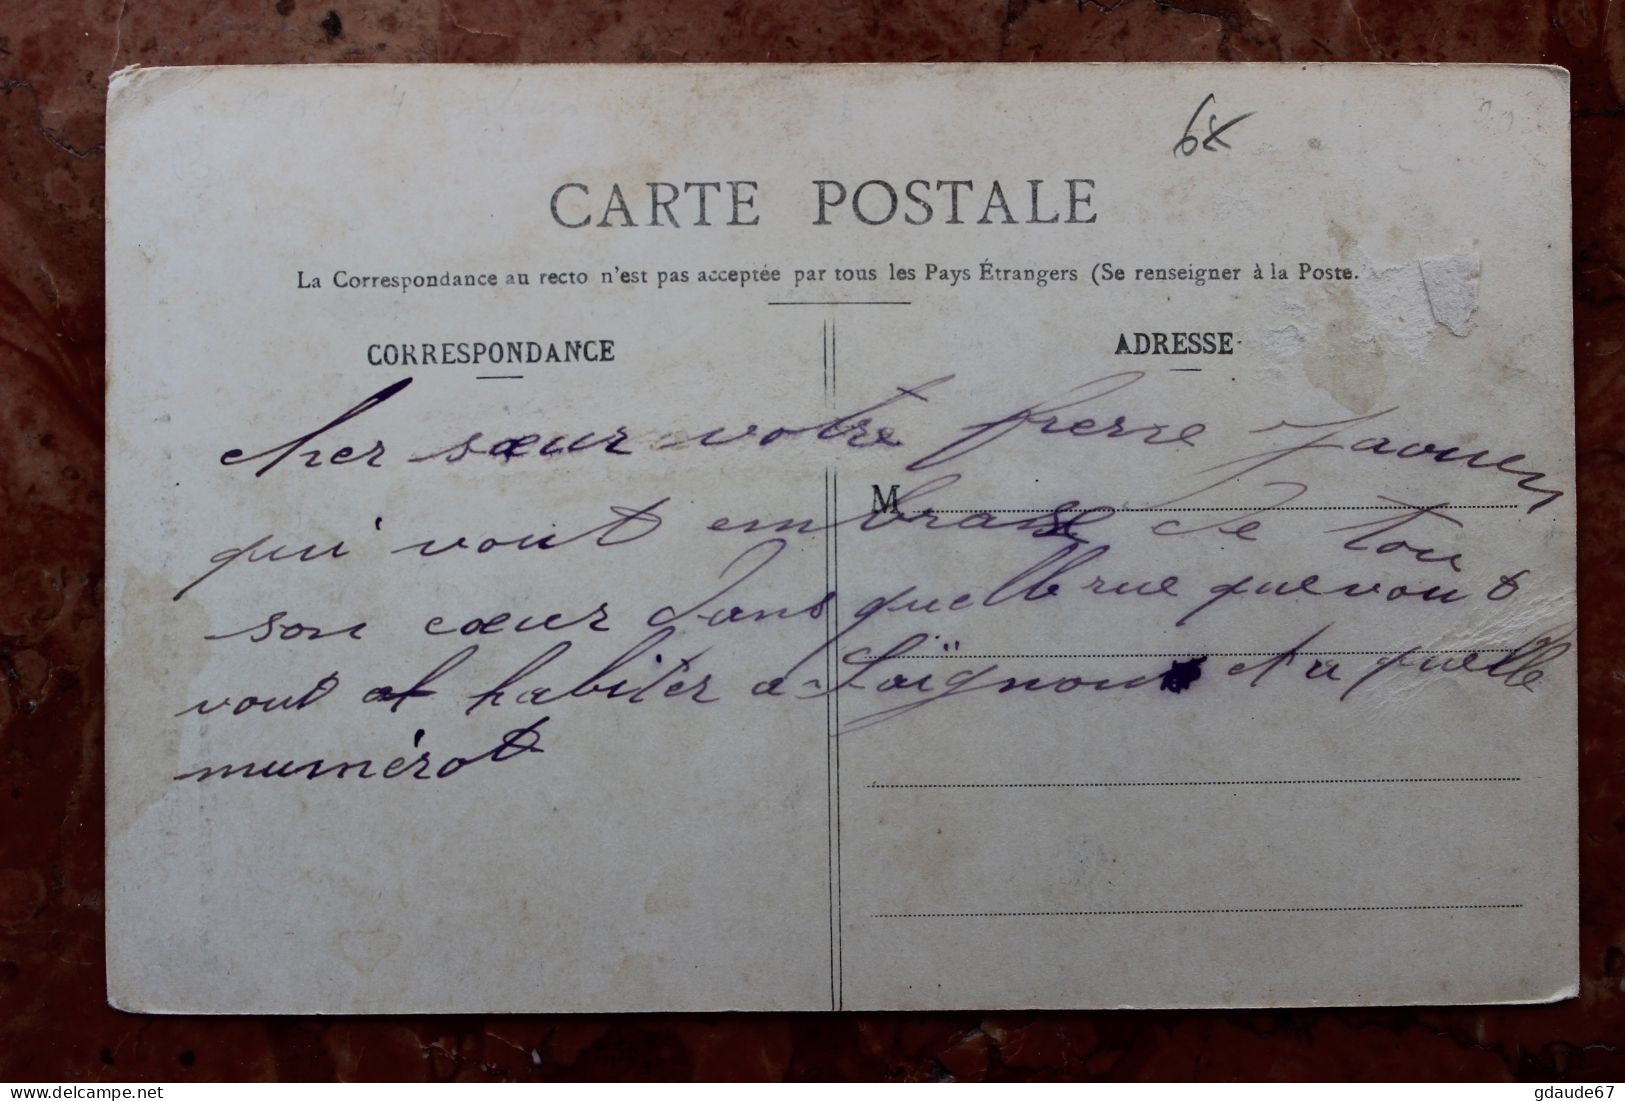 68
20
CARTE POSTALE
La Correspondance au recto n'est pas acceptée par tous les Pays Étrangers (Se renseigner à la Poste.
CORRESPONDANCE
ADRESSE
cher sœur votre frerre Jaouen
M
qui vout embrasse de tou
son cœur Dans quelle rue que vout
vout et habiter a Saïgnon et a quelle
numérot
delcampe.net
gdaude67